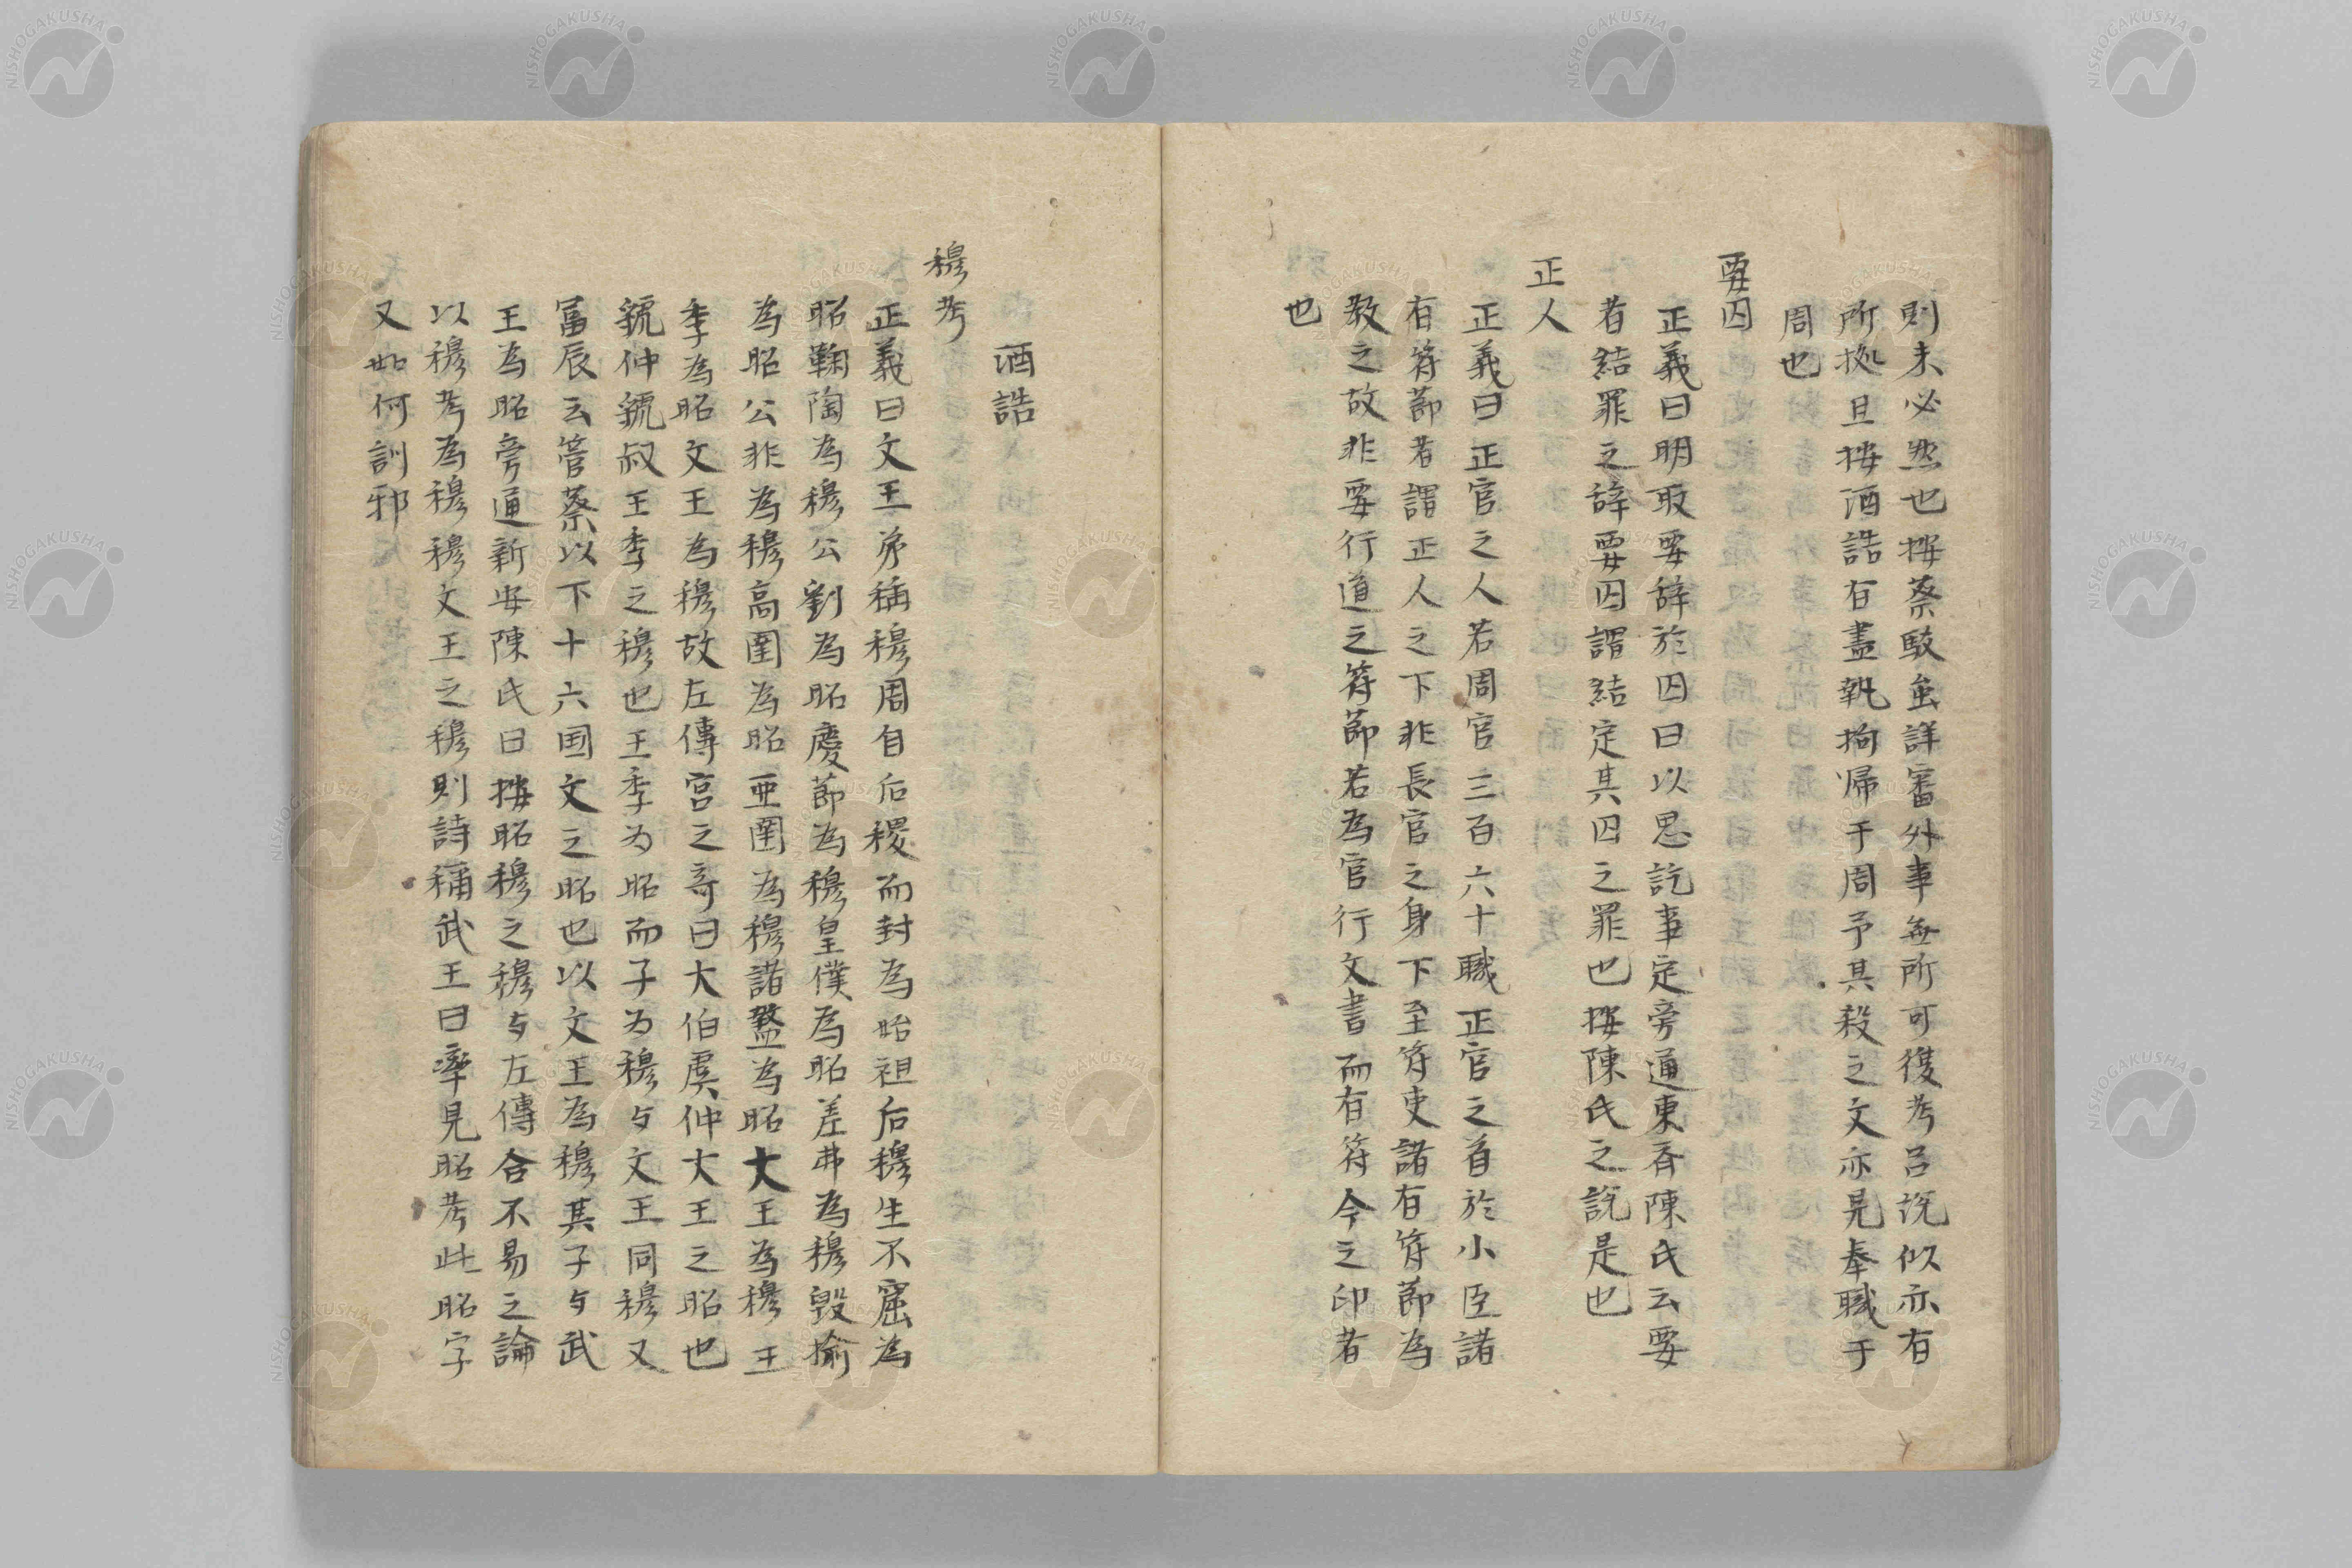 則未必然也按蔡駁虽詳審外事無所可復考呂说似亦有
所拠且按酒誥有盡執拘帰于周予其殺之文亦晃奉職于
周也
要囚
正義曰明取要辞於囚曰以思訖事定旁通東斎陳氏云要
者結罪之辞要囚謂結定其囚之罪也按陳氏之説是也
正人
正義曰正官之人若周官三百六十職正官之首於小臣諸
有符節者謂正人之下非長官之身下至符吏諸有符節為
教之故非要行道之符節若為官行文書而有符今之印者
也
酒誥
穆考
正義曰文王弟稱穆周自后稷而封為始祖后穆生不窟為
昭鞠陶為穆公劉為昭慶節為穆皇僕為昭差弗為穆毀揄
為昭公非為穆高圉為昭亜圉為穆諸盩為昭大王為穆王
季為昭文王為穆故左傳宮之奇曰大伯虞仲大王之昭也
虢仲虢叔王季之穆也王季为昭而子为穆与文王同穆又
冨辰云管蔡以下十六国文之昭也以文王為穆其子与武
王為昭旁通新安陳氏曰按昭穆之穆与左傳合不易之論
以穆考為穆穆文王之穆則詩稱武王曰率見昭考此昭字
又如何訓邪